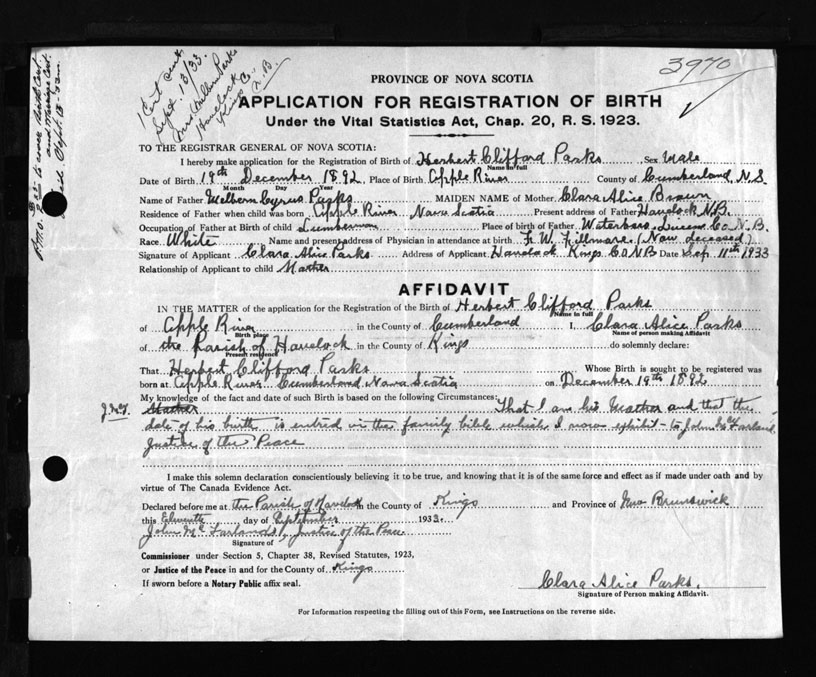 3970
1 Cert sent
Sept. 13/33.
Havelock
Kings Co.
N.B.
PROVINCE OF NOVA SCOTIA
APPLICATION FOR REGISTRATION OF BIRTH
Under the Vital Statistics Act, Chap. 20, R. S. 1923.
TO THE REGISTRAR GENERAL OF NOVA SCOTIA:
I hereby make application for the Registration of Birth of Herbert Clifford Parks Sex Male
Name in full
Date of Birth 19th December 1892 Place of Birth Apple River County of Cumberland N.S
Month Day
Name of Father Welbern Cyrus Parks MAIDEN NAME of Mother Clara Alice Brown
Residence of Father when child was born Apple River Nova Scotia Present address of Father Havelock N.B.
Occupation of Father at Birth of child Lumberman Place of birth of Father Waterboro Queens Co N.B.
Race White Name and present address of Physician in attendance at birth F. W. Fillmore (Now deceased)
Signature of Applicant Clara Alice Parks Address of Applicant Havelock Kings Co NB Date Sep 11th 1933
Relationship of Applicant to child Mother
AFFIDAVIT
IN THE MATTER of the application for the Registration of the Birth of Herbert Clifford Parks
Name in full
of Apple River in the County of Cumberland I, Clara Alice Parks
Birth place Name of person making Affidavit
of the Parish of Havelock in the County of Kings do solemnly declare:
Present residence
That Herbert Clifford Parks Whose Birth is sought to be registered was
born at Apple River Cumberland Nova Scotia on December 19th 1892
My knowledge of the fact and date of such Birth is based on the following Circumstances:
J.McF. Mother That I am his Mother and that the
date of his birth is entred in the family bible which I now exhibit to John McFarland
Justice of the Peace
I make this solemn declaration conscientiously believing it to be true, and knowing that it is of the same force and effect as if made under oath and by
virtue of The Canada Evidence Act.
Declared before me at the Parish of Havelock in the County of Kings and Province of New Brunswick
this Eleventh day of September 1933.
John McFarland, Justice of the Peace
Signature of
Commissioner under Section 5, Chapter 38, Revised Statutes, 1923,
or Justice of the Peace in and for the County of Kings
If sworn before a Notary Public affix seal.
Clara Alice Parks.
Signature of Person making Affidavit.
For Information respecting the filling out of this Form, see Instructions on the reverse side.